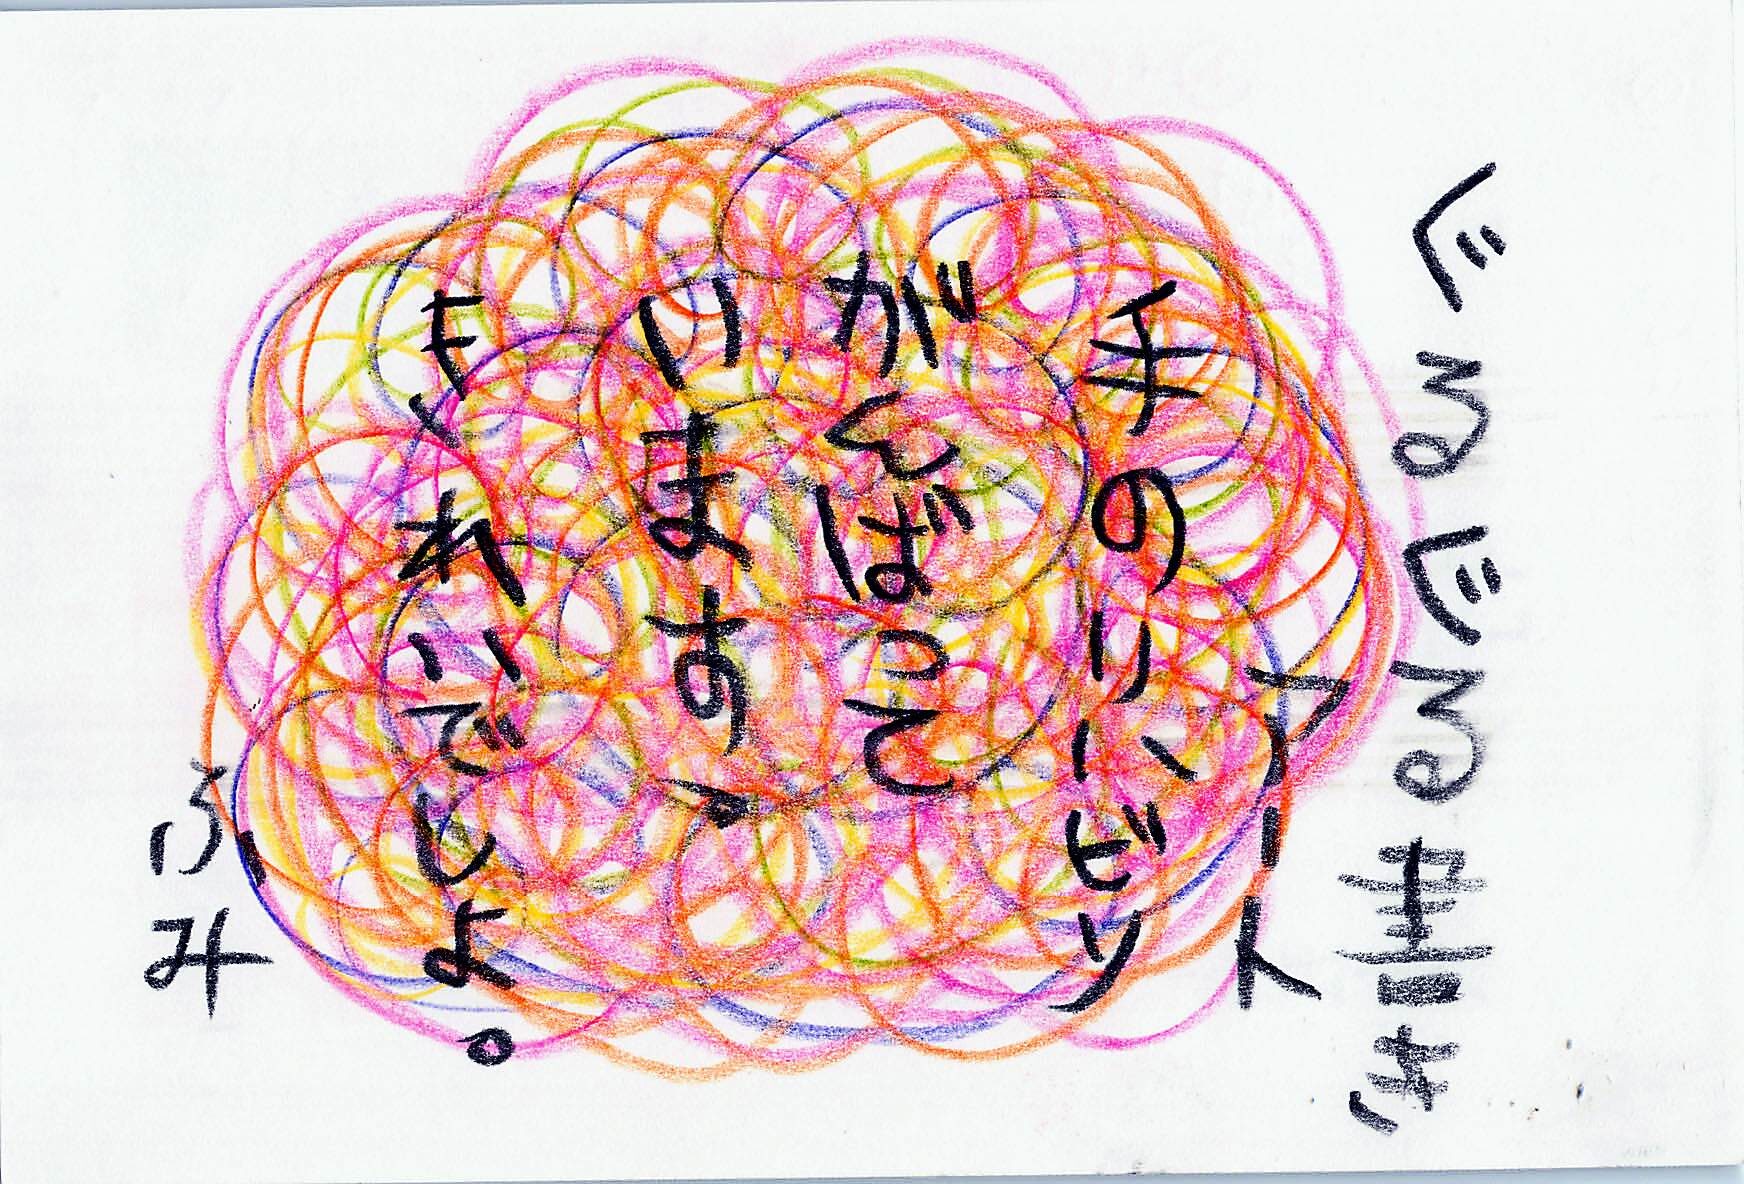 ぐるぐる書き
アート
手のリハビリ
がんばって
います、
きれいでしょ。
ふみ